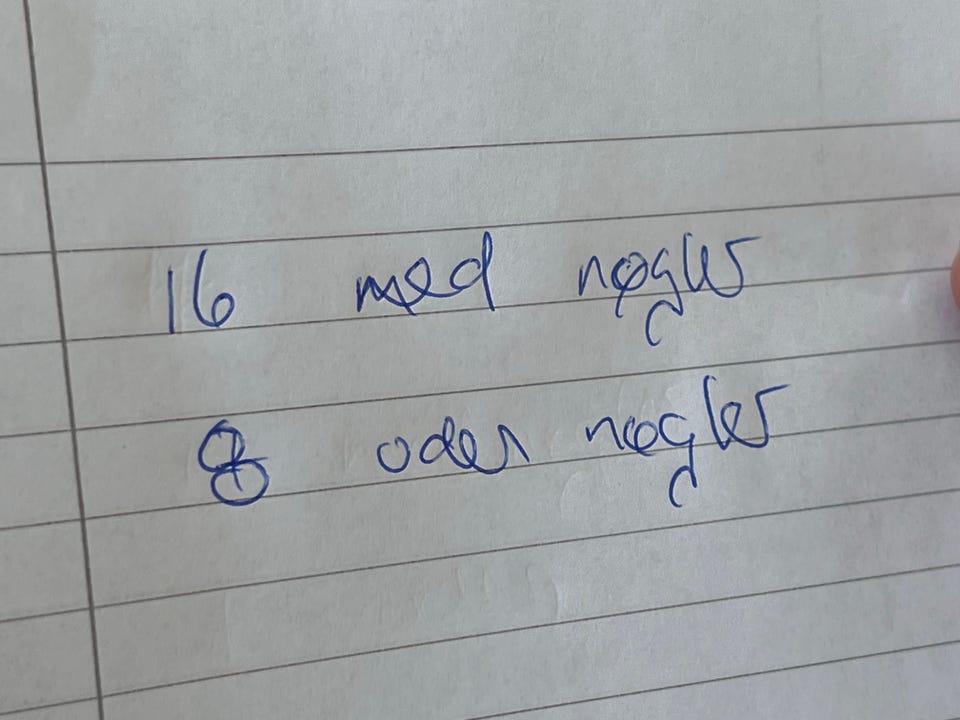 16 med nøgler
8 uden nøgler